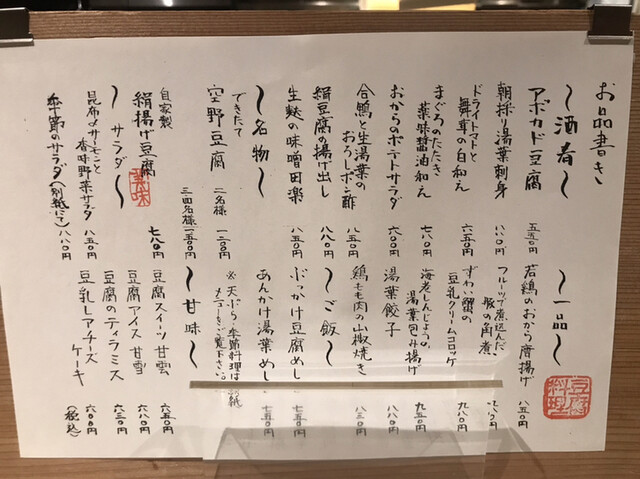 お品書き
〜酒肴〜
アボカド豆腐 五五〇円
朝採り湯葉刺身 八八〇円
ドライトマトと
舞茸の白和え 六五〇円
まぐろのたたき
薬味醤油和え 七八〇円
おからのポテトサラダ 六〇〇円
合鴨と生湯葉の
おろしポン酢 八五〇円
絹豆腐の揚げ出し 八八〇円
生麩の味噌田楽 八五〇円
〜名物〜
できたて
空野豆腐 二名様
三四名様 一五〇〇円
自家製
絹揚げ豆腐 七八〇円
美味
〜サラダ〜
昆布〆サーモンと
香味野菜サラダ 八五〇円
季節のサラダ(別紙にて) 八八〇円
〜一品〜
若鶏のおから唐揚げ 八五〇円
フルーツで煮込んだ
豚の角煮
ずわい蟹の
豆乳クリームコロッケ 九八〇円
海老しんじょうの
湯葉包み揚げ 九五〇円
湯葉餃子 八八〇円
鶏もも肉の山椒焼き 八五〇円
〜ご飯〜
ぶっかけ豆腐めし 七五〇円
あんかけ湯葉めし 七五〇円
※天ぷら・季節料理は別紙
メニューをご覧下さい。
〜甘味〜
豆腐スイーツ 甘雲 六五〇円
豆腐アイス 甘雪 六八〇円
豆腐のティラミス 六五〇円
豆乳レアチーズ
ケーキ 六〇〇円
(税込)
豆腐料理